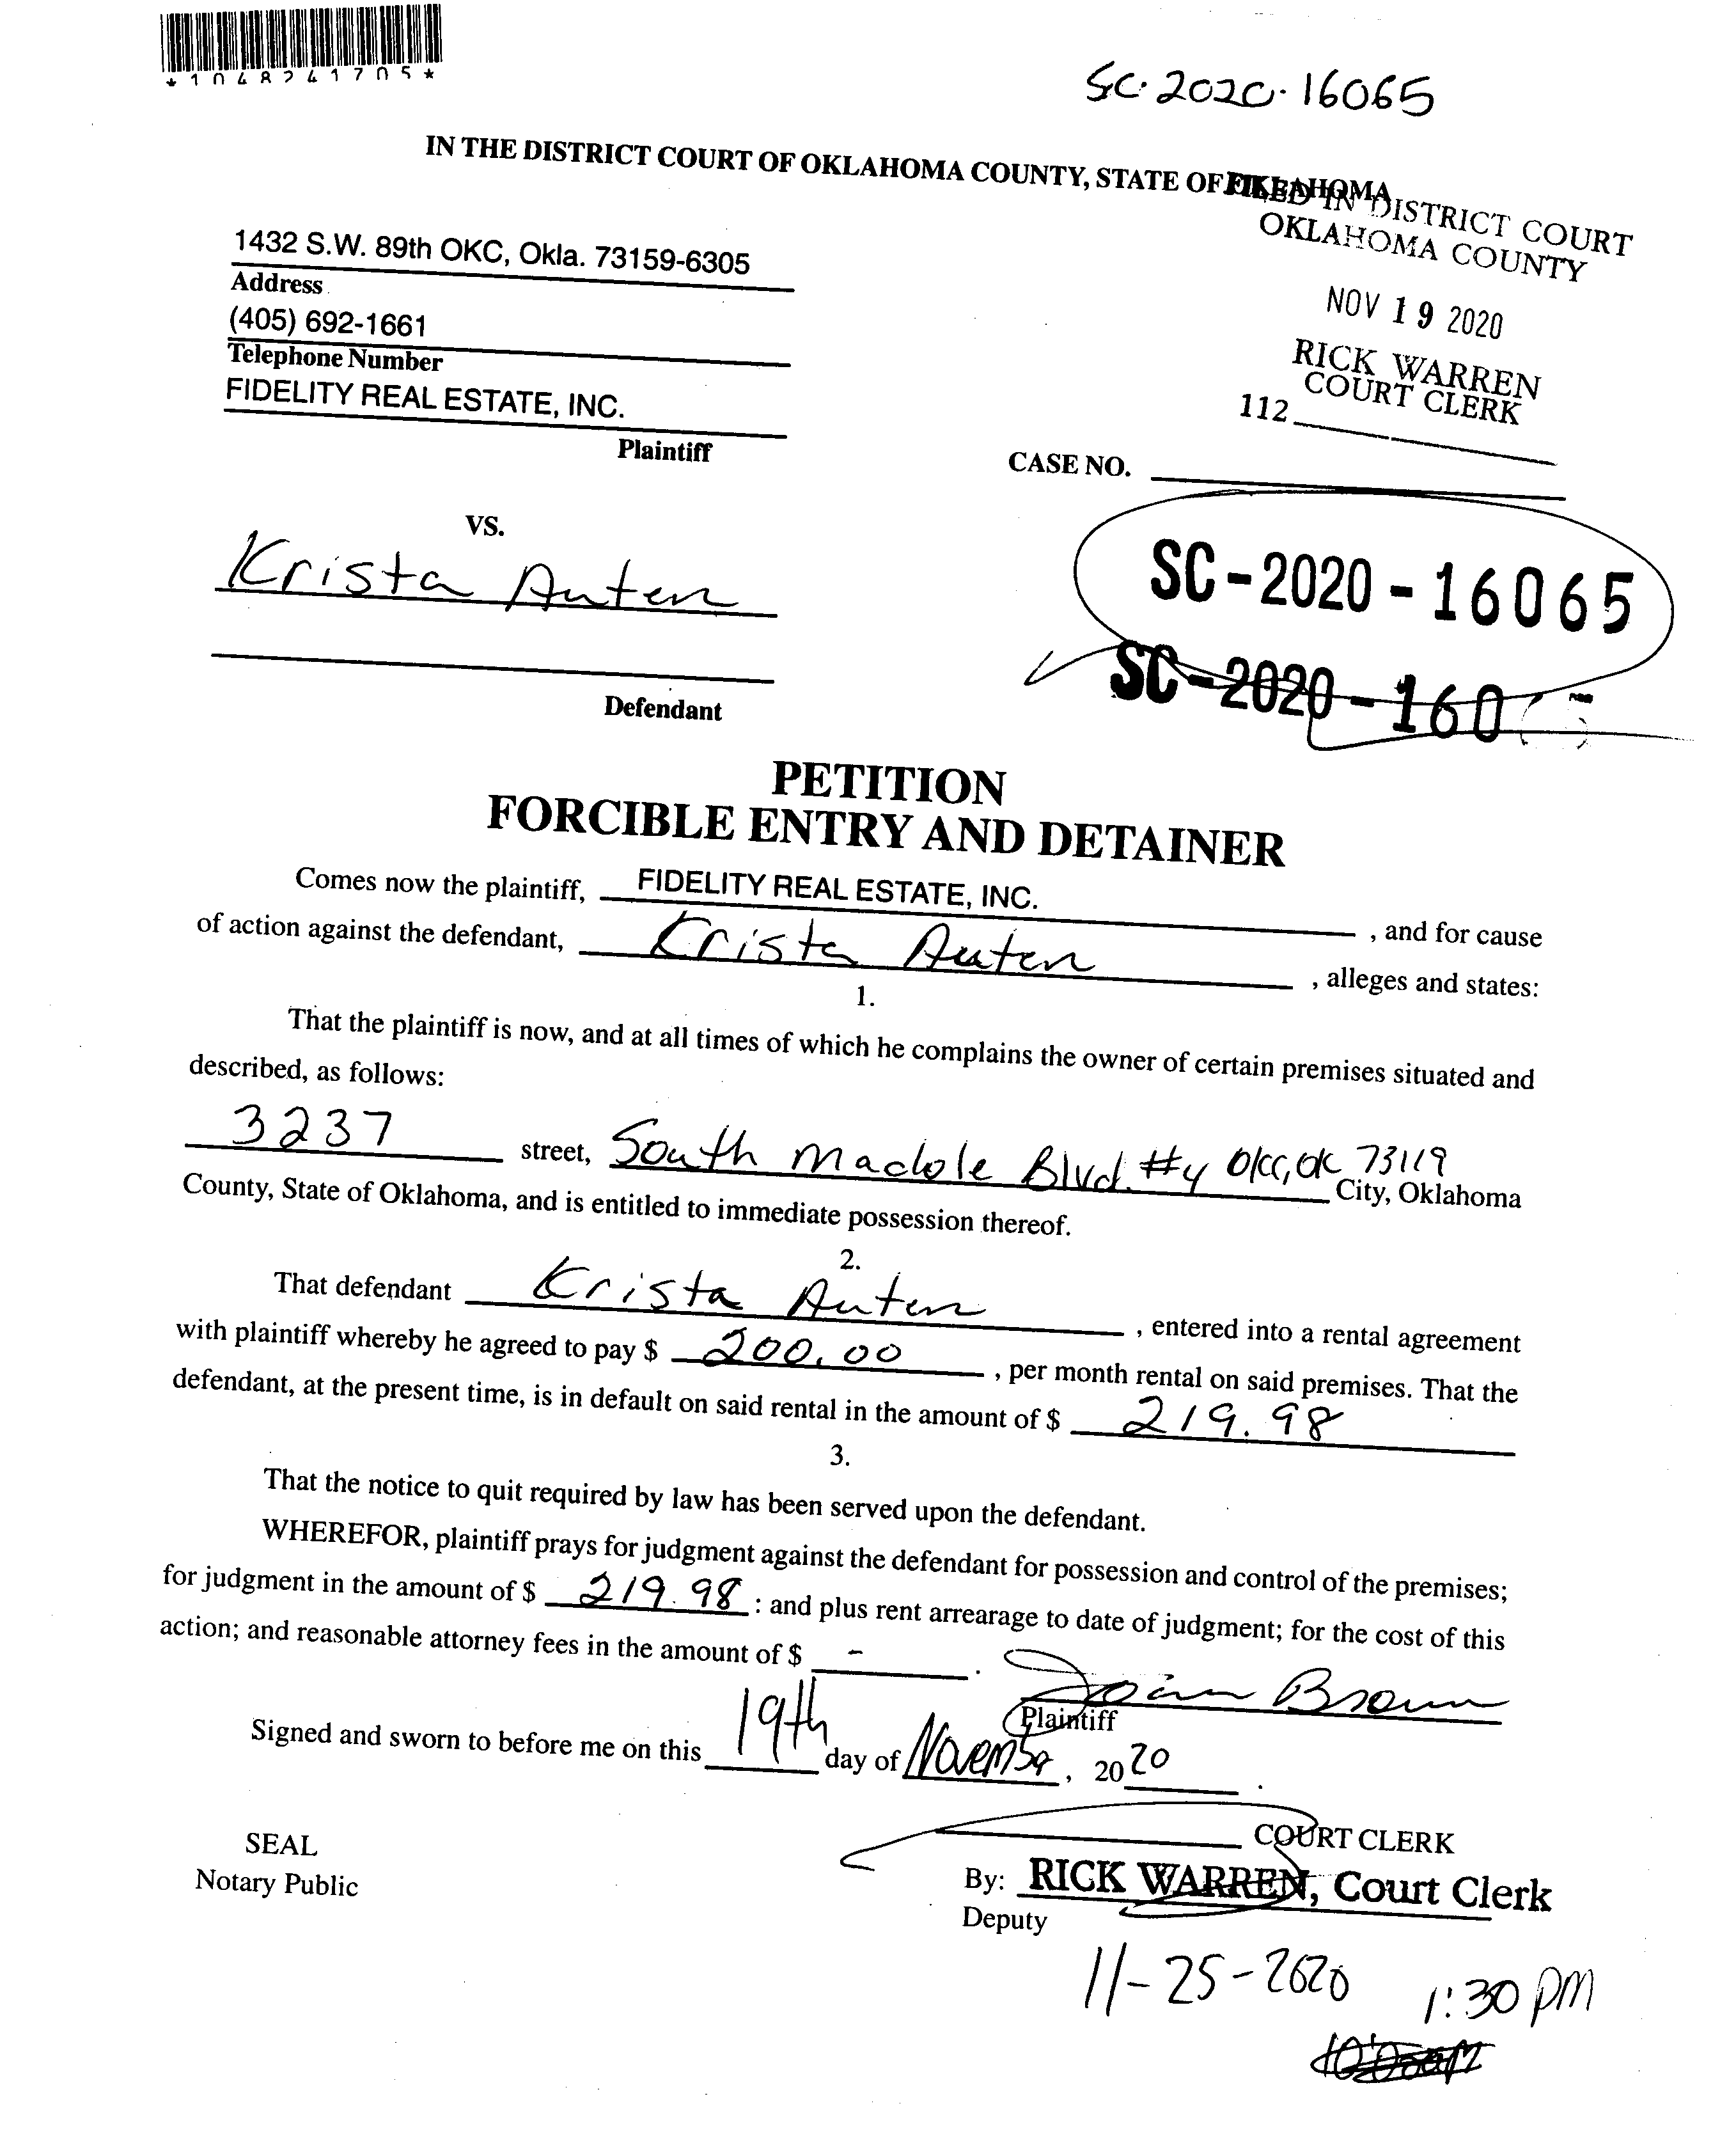 *1048241705*
SC-2020-16065
IN THE DISTRICT COURT OF OKLAHOMA COUNTY, STATE OF OKLAHOMA
FILED IN DISTRICT COURT
OKLAHOMA COUNTY
1432 S.W. 89th OKC, Okla. 73159-6305
Address
(405) 692-1661
NOV 19 2020
Telephone Number
RICK WARREN
COURT CLERK
FIDELITY REAL ESTATE, INC.
112
Plaintiff
CASE NO.
VS.
Krista Auten
SC-2020-16065
SC-2020-160
Defendant
PETITION
FORCIBLE ENTRY AND DETAINER
Comes now the plaintiff, FIDELITY REAL ESTATE, INC. , and for cause
of action against the defendant, Krista Auten , alleges and states:
1.
That the plaintiff is now, and at all times of which he complains the owner of certain premises situated and
described, as follows:
3237 street, South Madole Blvd. #4 OKC, OK 73119 City, Oklahoma
County, State of Oklahoma, and is entitled to immediate possession thereof.
2.
That defendant Krista Auten , entered into a rental agreement
with plaintiff whereby he agreed to pay $ 200.00 , per month rental on said premises. That the
defendant, at the present time, is in default on said rental in the amount of $ 219.98
3.
That the notice to quit required by law has been served upon the defendant.
WHEREFOR, plaintiff prays for judgment against the defendant for possession and control of the premises;
for judgment in the amount of $ 219.98 : and plus rent arrearage to date of judgment; for the cost of this
action; and reasonable attorney fees in the amount of $ - .
Brown
Plaintiff
Signed and sworn to before me on this 19th day of November, 2020 .
COURT CLERK
SEAL
Notary Public
By: RICK WARREN, Court Clerk
Deputy
11-25-2020 1:30 PM